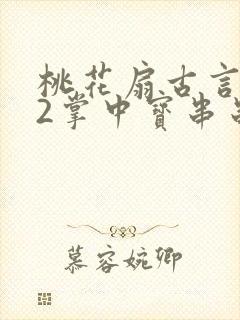 桃花扇古言
2掌中寶串
慕容婉卿